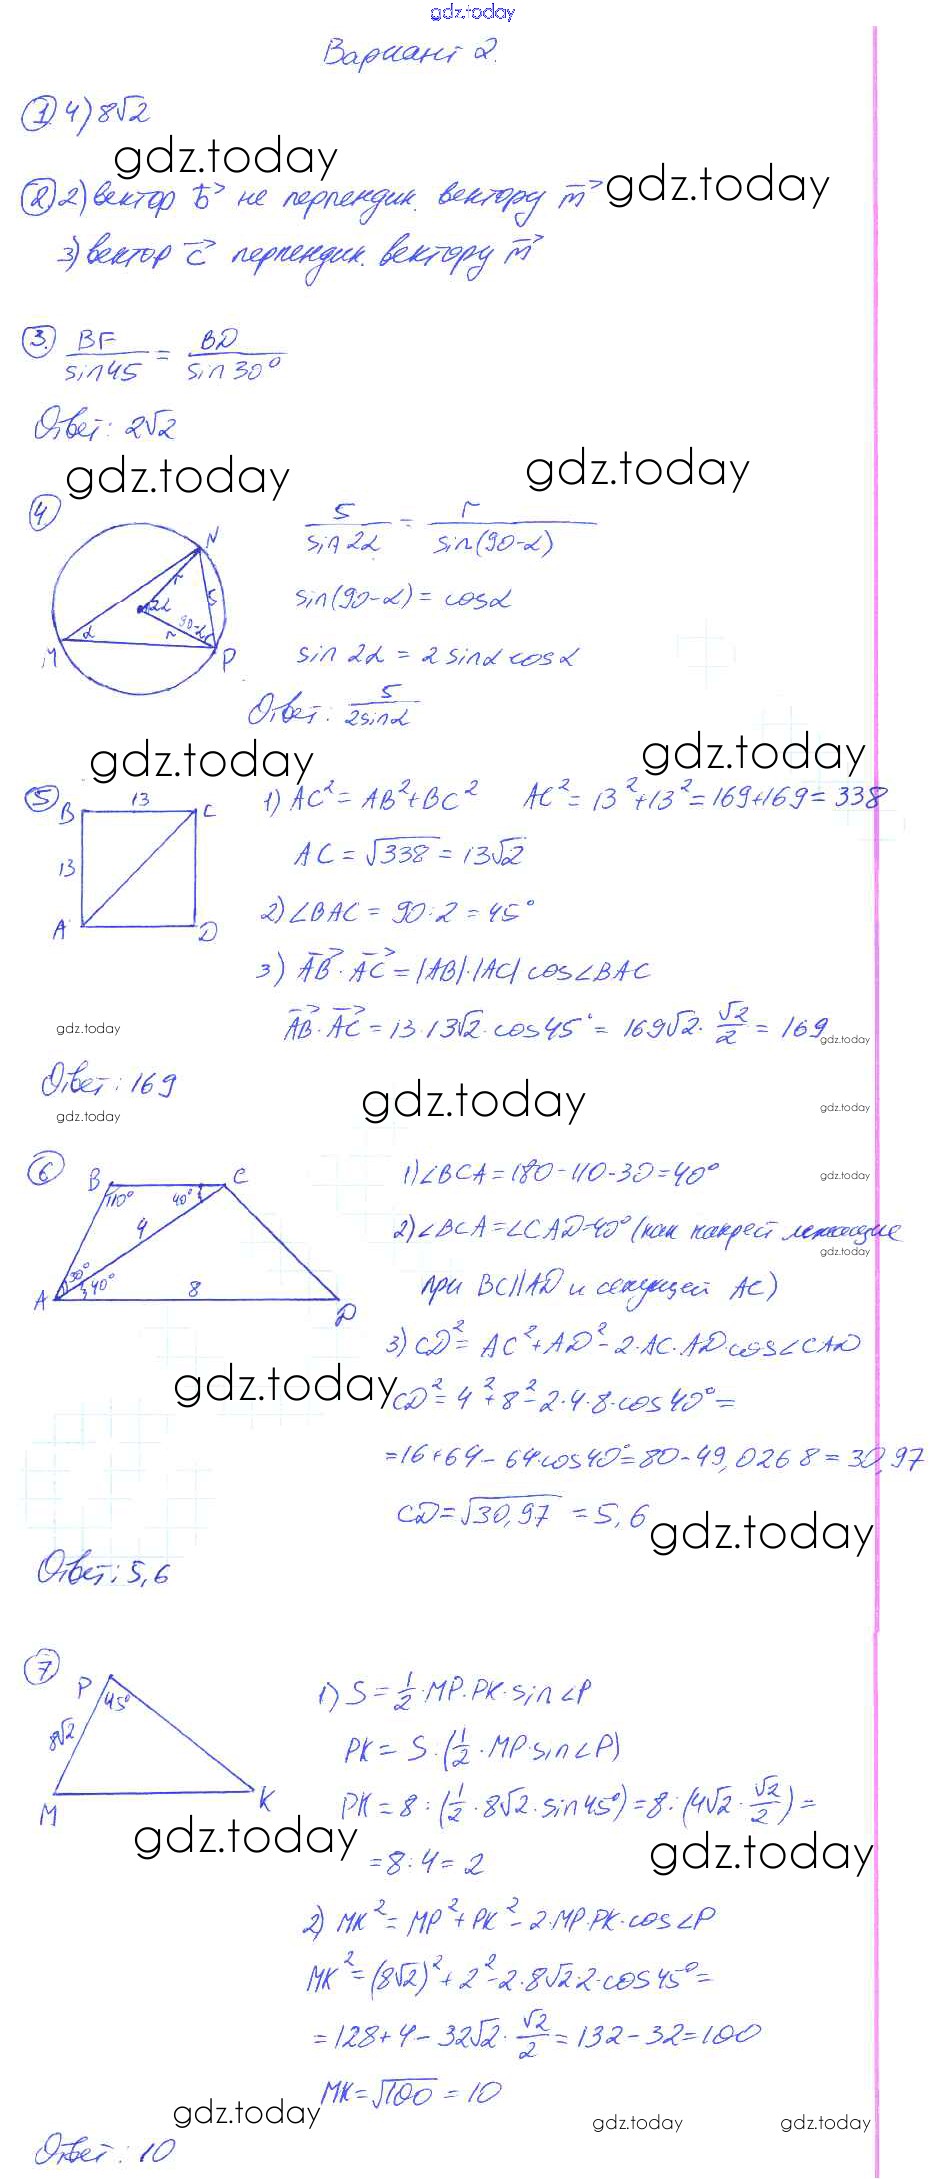 gdz.today
Вариант 2.
1. 4) 8√2
gdz.today
2) 2) вектор b⃗ не перпендик. вектору m⃗ gdz.today
3) вектор c⃗ перпендик. вектору m⃗
3. BF/sin45 = BD/sin30°
Ответ: 2√2
gdz.today gdz.today
4 5/sin2α = r/sin(90-α)
N
r 5
2α
sin(90-α) = cosα
α r 90-α
M P
sin 2α = 2 sinα cosα
Ответ: 5/2sinα
gdz.today gdz.today
5 B 13 C 1) AC² = AB² + BC² AC² = 13² + 13² = 169 + 169 = 338
13
AC = √338 = 13√2
A D
2) ∠BAC = 90:2 = 45°
3) AB⃗ · AC⃗ = |AB|·|AC| cos∠BAC
AB⃗ · AC⃗ = 13·13√2·cos45° = 169√2 · √2/2 = 169
gdz.today gdz.today
Ответ: 169
gdz.today gdz.today gdz.today
6 B C 1) ∠BCA = 180-110-30 = 40° gdz.today
110° 40°
4
2) ∠BCA = ∠CAD = 40° (как накрест лежащие
gdz.today
30° 40° 8
A D
при BC||AD и секущей AC)
3) CD² = AC² + AD² - 2·AC·AD·cos∠CAD
gdz.today
CD² = 4² + 8² - 2·4·8·cos40° =
= 16 + 64 - 64·cos40° = 80 - 49,0268 = 30,97
CD = √30,97 = 5,6
gdz.today
Ответ: 5,6
7 P 45° 1) S = 1/2·MP·PK·sin∠P
8√2
PK = S·(1/2·MP·sin∠P)
M K
PK = 8 : (1/2·8√2·sin45°) = 8 : (4√2·√2/2) =
gdz.today gdz.today
= 8:4 = 2
2) MK² = MP² + PK² - 2·MP·PK·cos∠P
MK² = (8√2)² + 2² - 2·8√2·2·cos45° =
= 128 + 4 - 32√2·√2/2 = 132 - 32 = 100
MK = √100 = 10
gdz.today gdz.today gdz.today
Ответ: 10